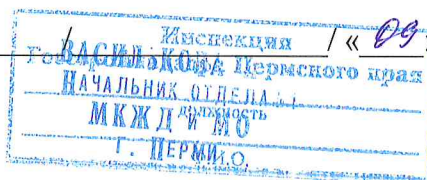 / Инспекция / « 09
ВАСИЛЬКОВА Пермского края
НАЧАЛЬНИК ОТДЕЛА
должность
МКЖД И МО
Г. ПЕРМИ И.О.